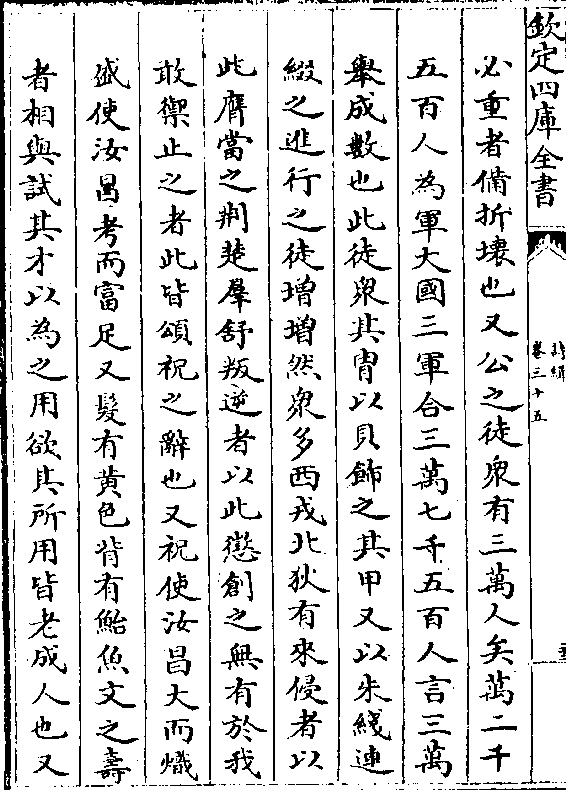 欽定四庫全書
詩緝
卷三十五
必重者備折壊也又公之徒衆有三萬人矣萬二千
五百人為軍大國三軍合三萬七千五百人言三萬
舉成數也此徒衆其冑以貝飾之其甲又以朱綫連
綴之進行之徒增增然衆多西戎北狄有來侵者以
此膺當之荆楚羣舒叛逆者以此懲創之無有於我
敢禦止之者此皆頌祝之辭也又祝使汝昌大而熾
盛使汝昌考而富足又髮有黄色背有鮐魚文之壽
者相與試其才以為之用欲其所用皆老成人也又